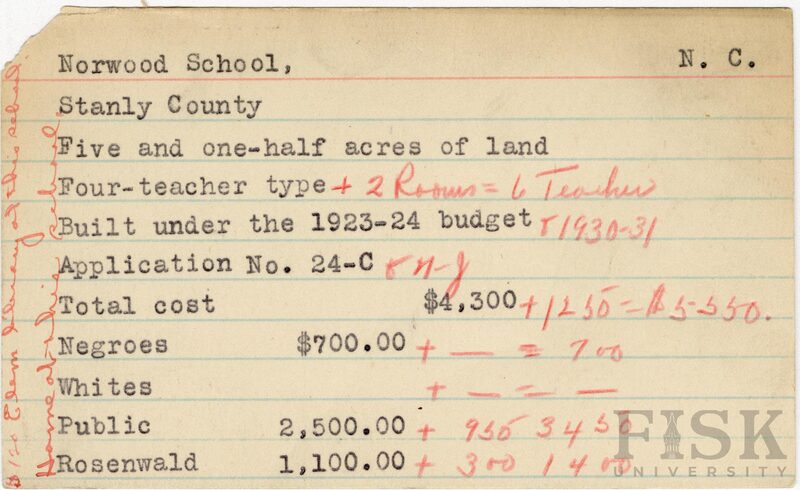 Norwood School, N. C.
Stanly County
Five and one-half acres of land
Four-teacher type + 2 Rooms = 6 Teacher
Built under the 1923-24 budget & 1930-31
Application No. 24-C &
Total cost $4,300 + 1250 = $5550.
Negroes $700.00 + — = 700
Whites + — = —
Public 2,500.00 + 950 3450
Rosenwald 1,100.00 + 300 1400
$120 Elem Library at this school.
Home at this school.
FISK
UNIVERSITY